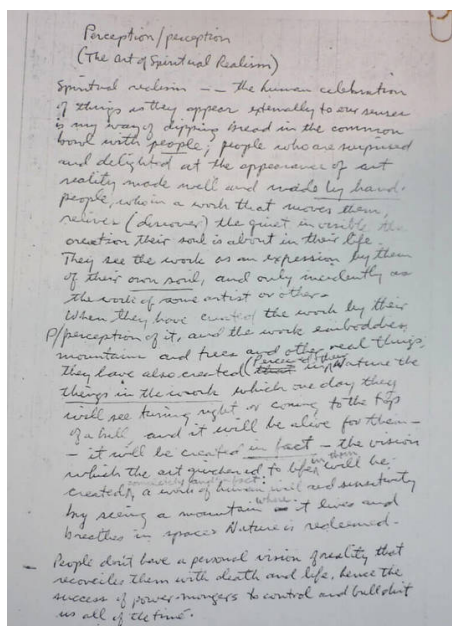 Perception/perception
(The Art of Spiritual Realism)
Spiritual realism -- the human celebration
of things as they appear externally to our senses
is my way of dipping bread in the common
bowl with people; people who are surprised
and delighted at the appearance of art
reality made well and made by hand.
people, who in a work that moves them,
relive (discover) the quiet invisible
creation their soul is about in their life.
They see the work as an expression by them
of their own soul, and only incidently as
the work of some artist or other.
When they have created the work by their
P/perception of it, and the work embodies
mountains and trees and other real things,
they have also created in Nature the
things in the work which one day they
will see turning right or coming to the top
of a hill, and it will be alive for them -
- it will be created in fact - the vision
which the art quickened to life in them will be
created, a work of human and sensitivity
by seeing a mountain where it lives and
breathes in space. Nature is redeemed.
- People don't have a personal vision of reality that
reconciles them with death and life, hence the
success of power-mongers to control and bullshit
us all of the time.